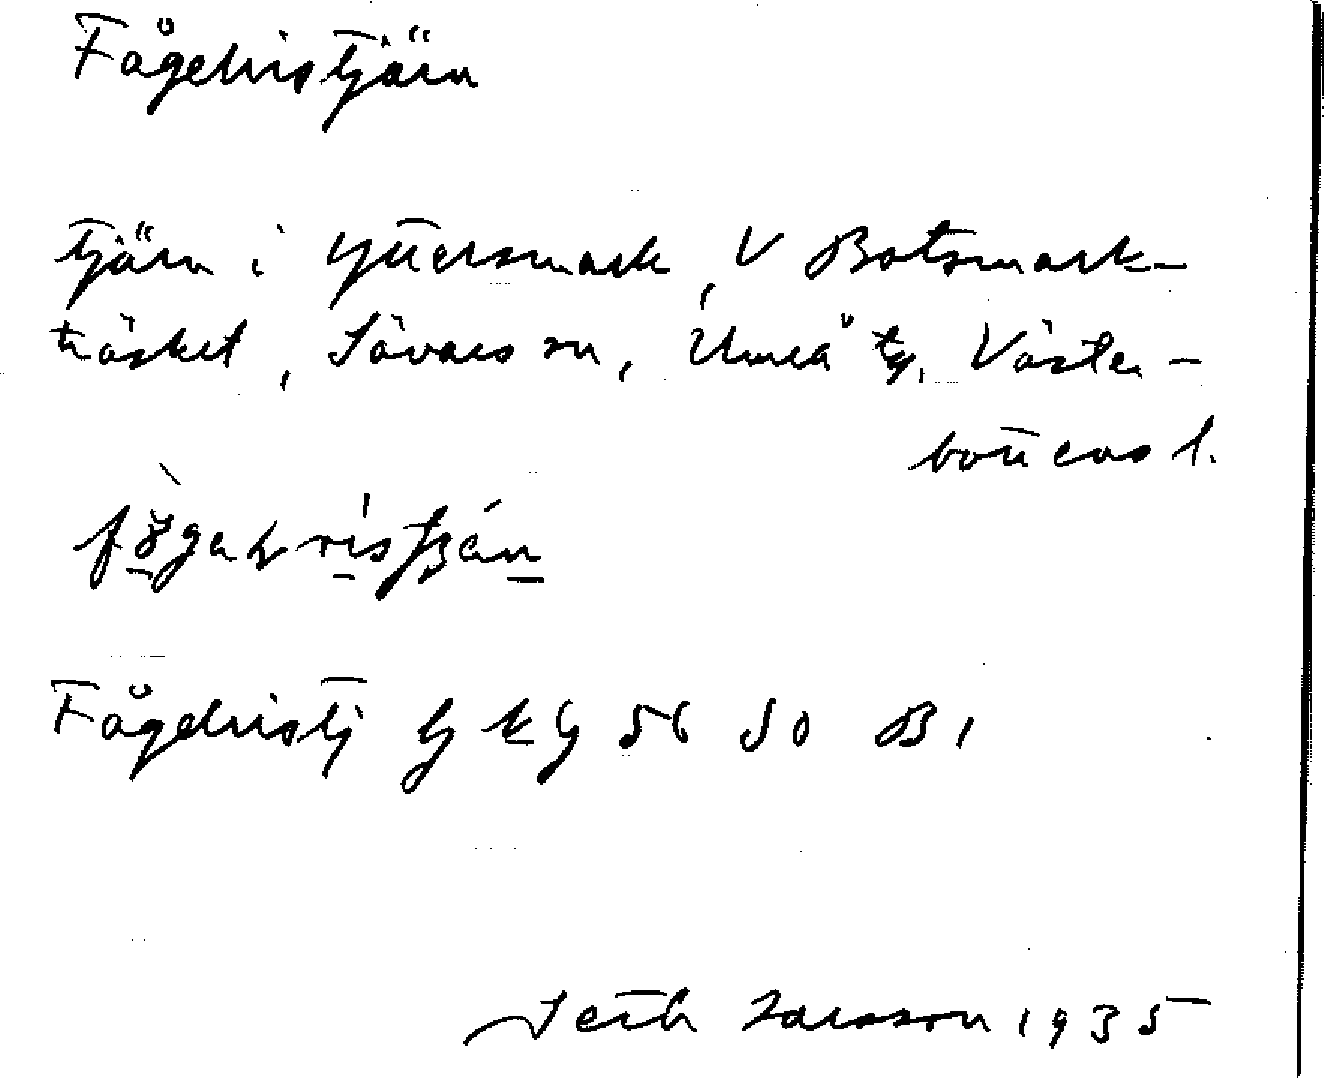 Fågelristjärn
tjärn i Gummark, V Botsmark-
träsket, Sävars sn, Umeå tg, Väster-
bottens l.
Fågelristj gkg 56 50 B1
Seth Larsson 1935